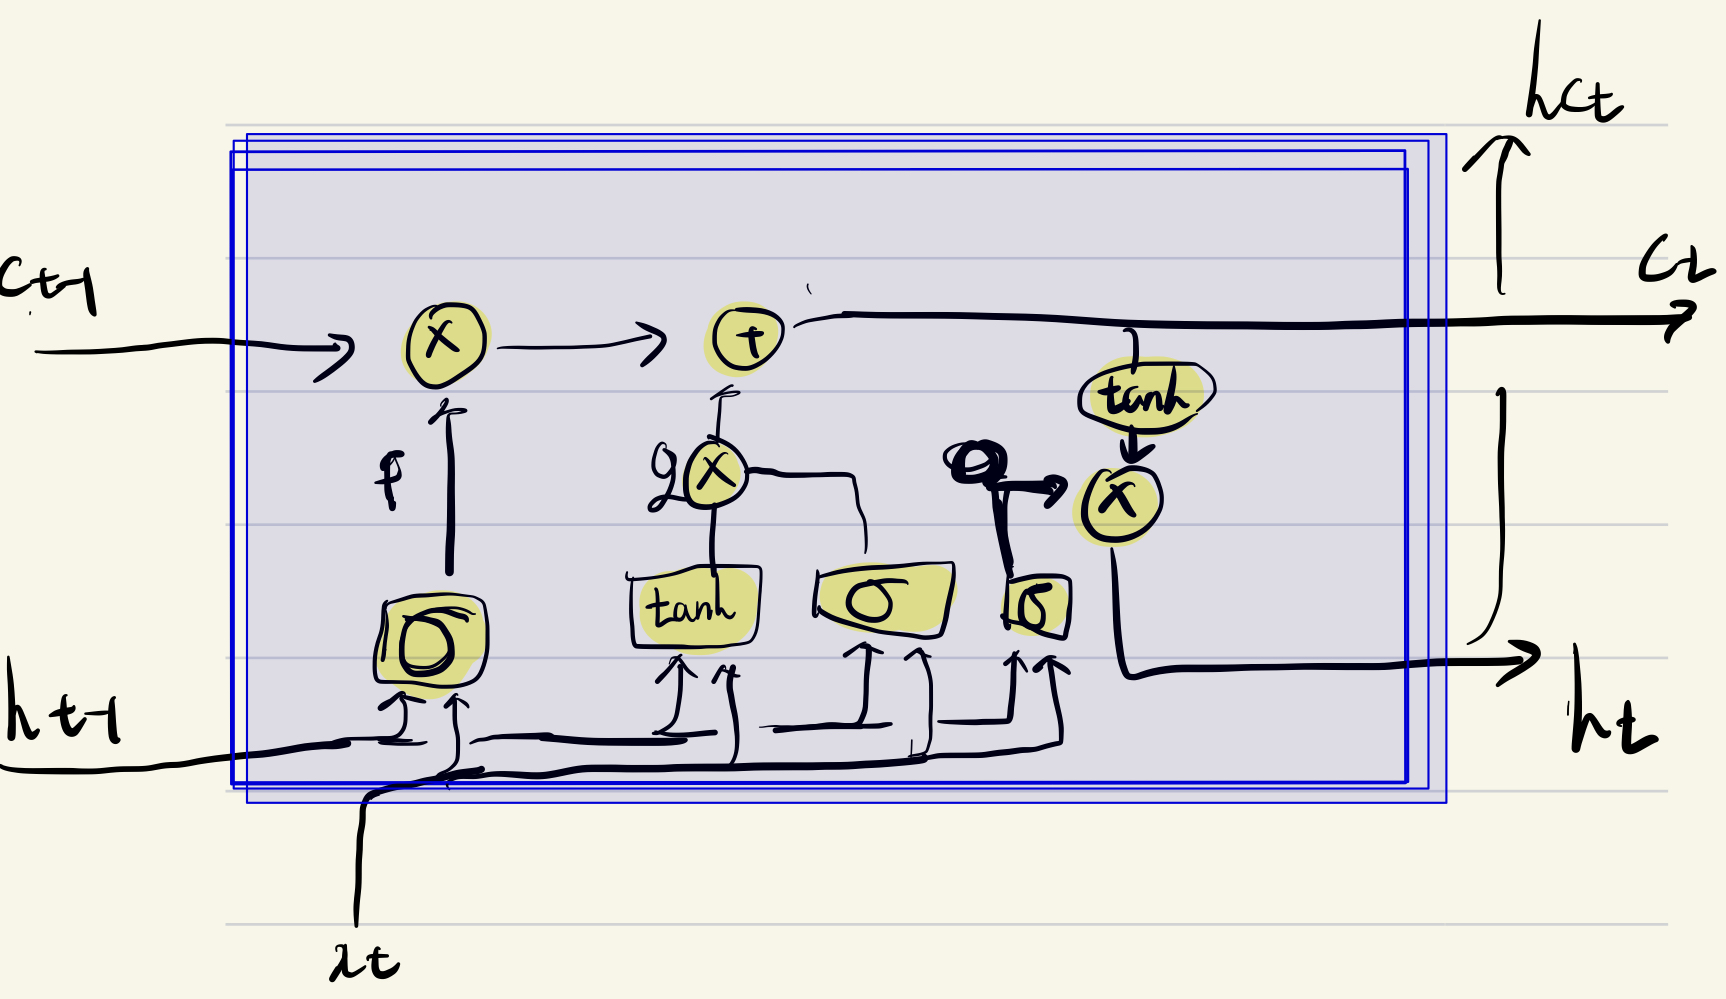 hct
Ct-1
Ct
x
+
tanh
f
g
x
x
σ
tanh
σ
σ
ht-1
ht
xt